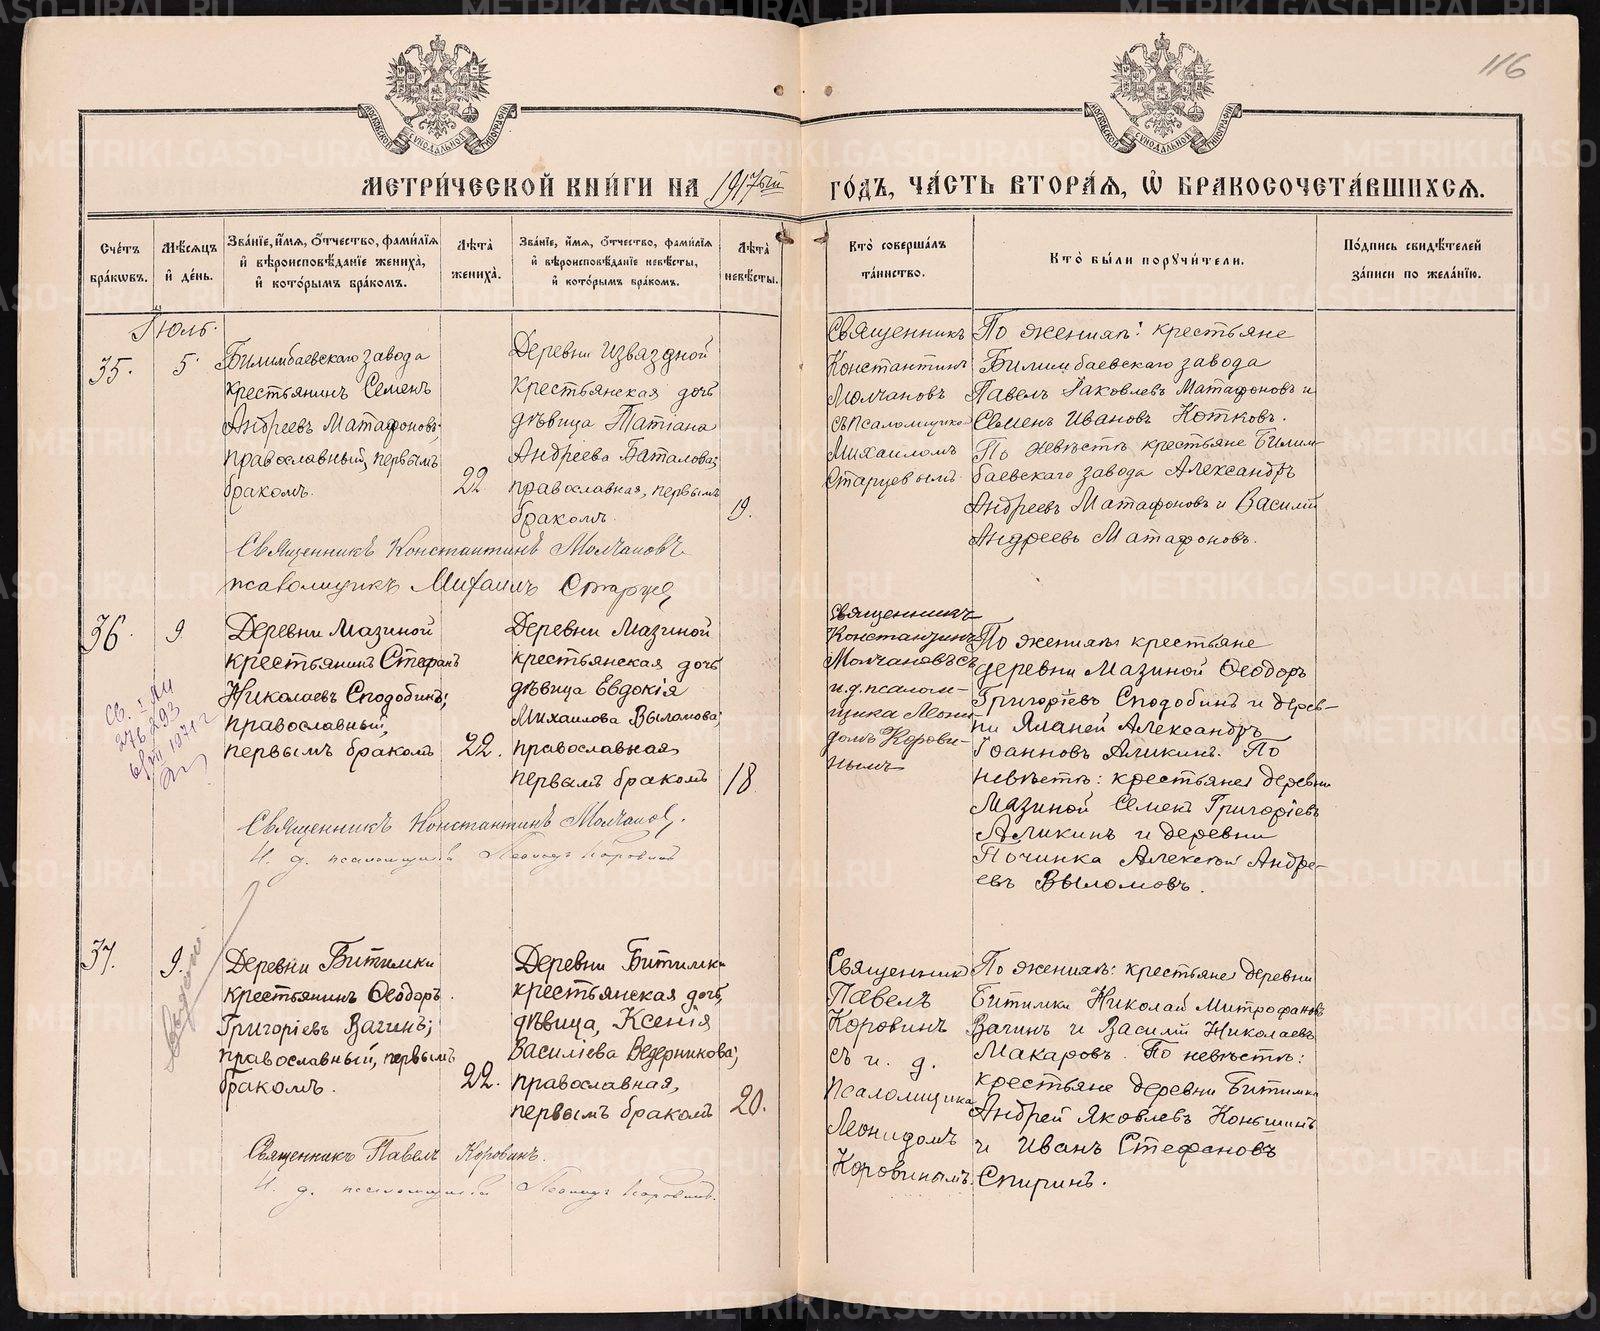 116
МЕТРИ́ЧЕСКОЙ КНИ́ГИ НА 1917ый ГО́ДЪ, ЧА́СТЬ ВТОРА́Я, Ѡ҆ БРАКОСОЧЕТА́ВШИХСЯ.
Сче́тъ бра́кѡвъ.
Мѣ́сяцъ и҆ де́нь.
Зва́нїе, и҆́мя, ѻ҆́тчество, фами́лїя и҆ вѣроисповѣ́данїе жениха̀, и҆ кото́рымъ бра́комъ.
Лѣ́та жениха̀.
Зва́нїе, и҆́мя, ѻ҆́тчество, фами́лїя и҆ вѣроисповѣ́данїе невѣ́сты, и҆ кото́рымъ бра́комъ.
Лѣ́та невѣ́сты.
Кто̀ соверша́лъ та́инство.
Кто̀ бы́ли порꙋчи́тели.
По́дпись свидѣ́телей за́писи по жела́нїю.
Іюль.
35.
5.
Билимбаевскаго завода
крестьянинъ Семенъ
Андреевъ Матафоновъ;
православный, первымъ
бракомъ.
22
Деревни Извяздной
крестьянская дочь
дѣвица Татіана
Андреева Баталова;
православная, первымъ
бракомъ.
19.
Священникъ
Константинъ
Молчановъ
съ псаломщикомъ
Михаиломъ
Старцевымъ
По женихѣ: крестьяне
Билимбаевскаго завода
Павелъ Яковлевъ Матафоновъ и
Семенъ Ивановъ Котковъ.
По невѣстѣ крестьяне Билим-
баевскаго завода Александръ
Андреевъ Матафоновъ и Василій
Андреевъ Матафоновъ.
Священникъ Константинъ Молчановъ
псаломщикъ Михаилъ Старцев
36.
9.
Деревни Мазиной
крестьянинъ Стефанъ
Николаевъ Сподобинъ;
православный,
первымъ бракомъ
22.
Деревни Мазиной
крестьянская дочь
дѣвица Евдокія
Михаилова Выломова;
православная
первымъ бракомъ
18
Священникъ
Константинъ
Молчановъ съ
и.д. псалом-
щика Леони-
домъ Корови-
нымъ
По женихѣ крестьяне
деревни Мазиной Ѳеодоръ
Григоріевъ Сподобинъ и дерев-
ни Яланей Александръ
Іоанновъ Аликинъ. По
невѣстѣ: крестьяне деревни
Мазиной Семенъ Григоріевъ
Аликинъ и деревни
Починка Алексѣй Андре-
евъ Выломовъ.
Священникъ Константинъ Молчановъ.
И. д. псаломщика Леонидъ Коровинъ
37.
9.
Деревни Битимки
крестьянинъ Ѳеодоръ
Григоріевъ Вагинъ;
православный, первымъ
бракомъ.
22.
Деревни Битимки
крестьянская дочь,
дѣвица, Ксенія
Василіева Ведерникова;
православная,
первымъ бракомъ
20.
Священникъ
Павелъ
Коровинъ
съ и. д.
псаломщика
Леонидомъ
Коровинымъ.
По женихѣ: крестьяне деревни
Битимки Николай Митрофановъ
Вагинъ и Василій Николаевъ
Макаровъ. По невѣстѣ:
крестьяне деревни Битимки
Андрей Яковлевъ Коньшинъ
и Иванъ Стефановъ
Спиринъ.
Священникъ Павелъ Коровинъ.
И. д. псаломщика Леонидъ Коровинъ.
METRIKI.GASO-URAL.RU